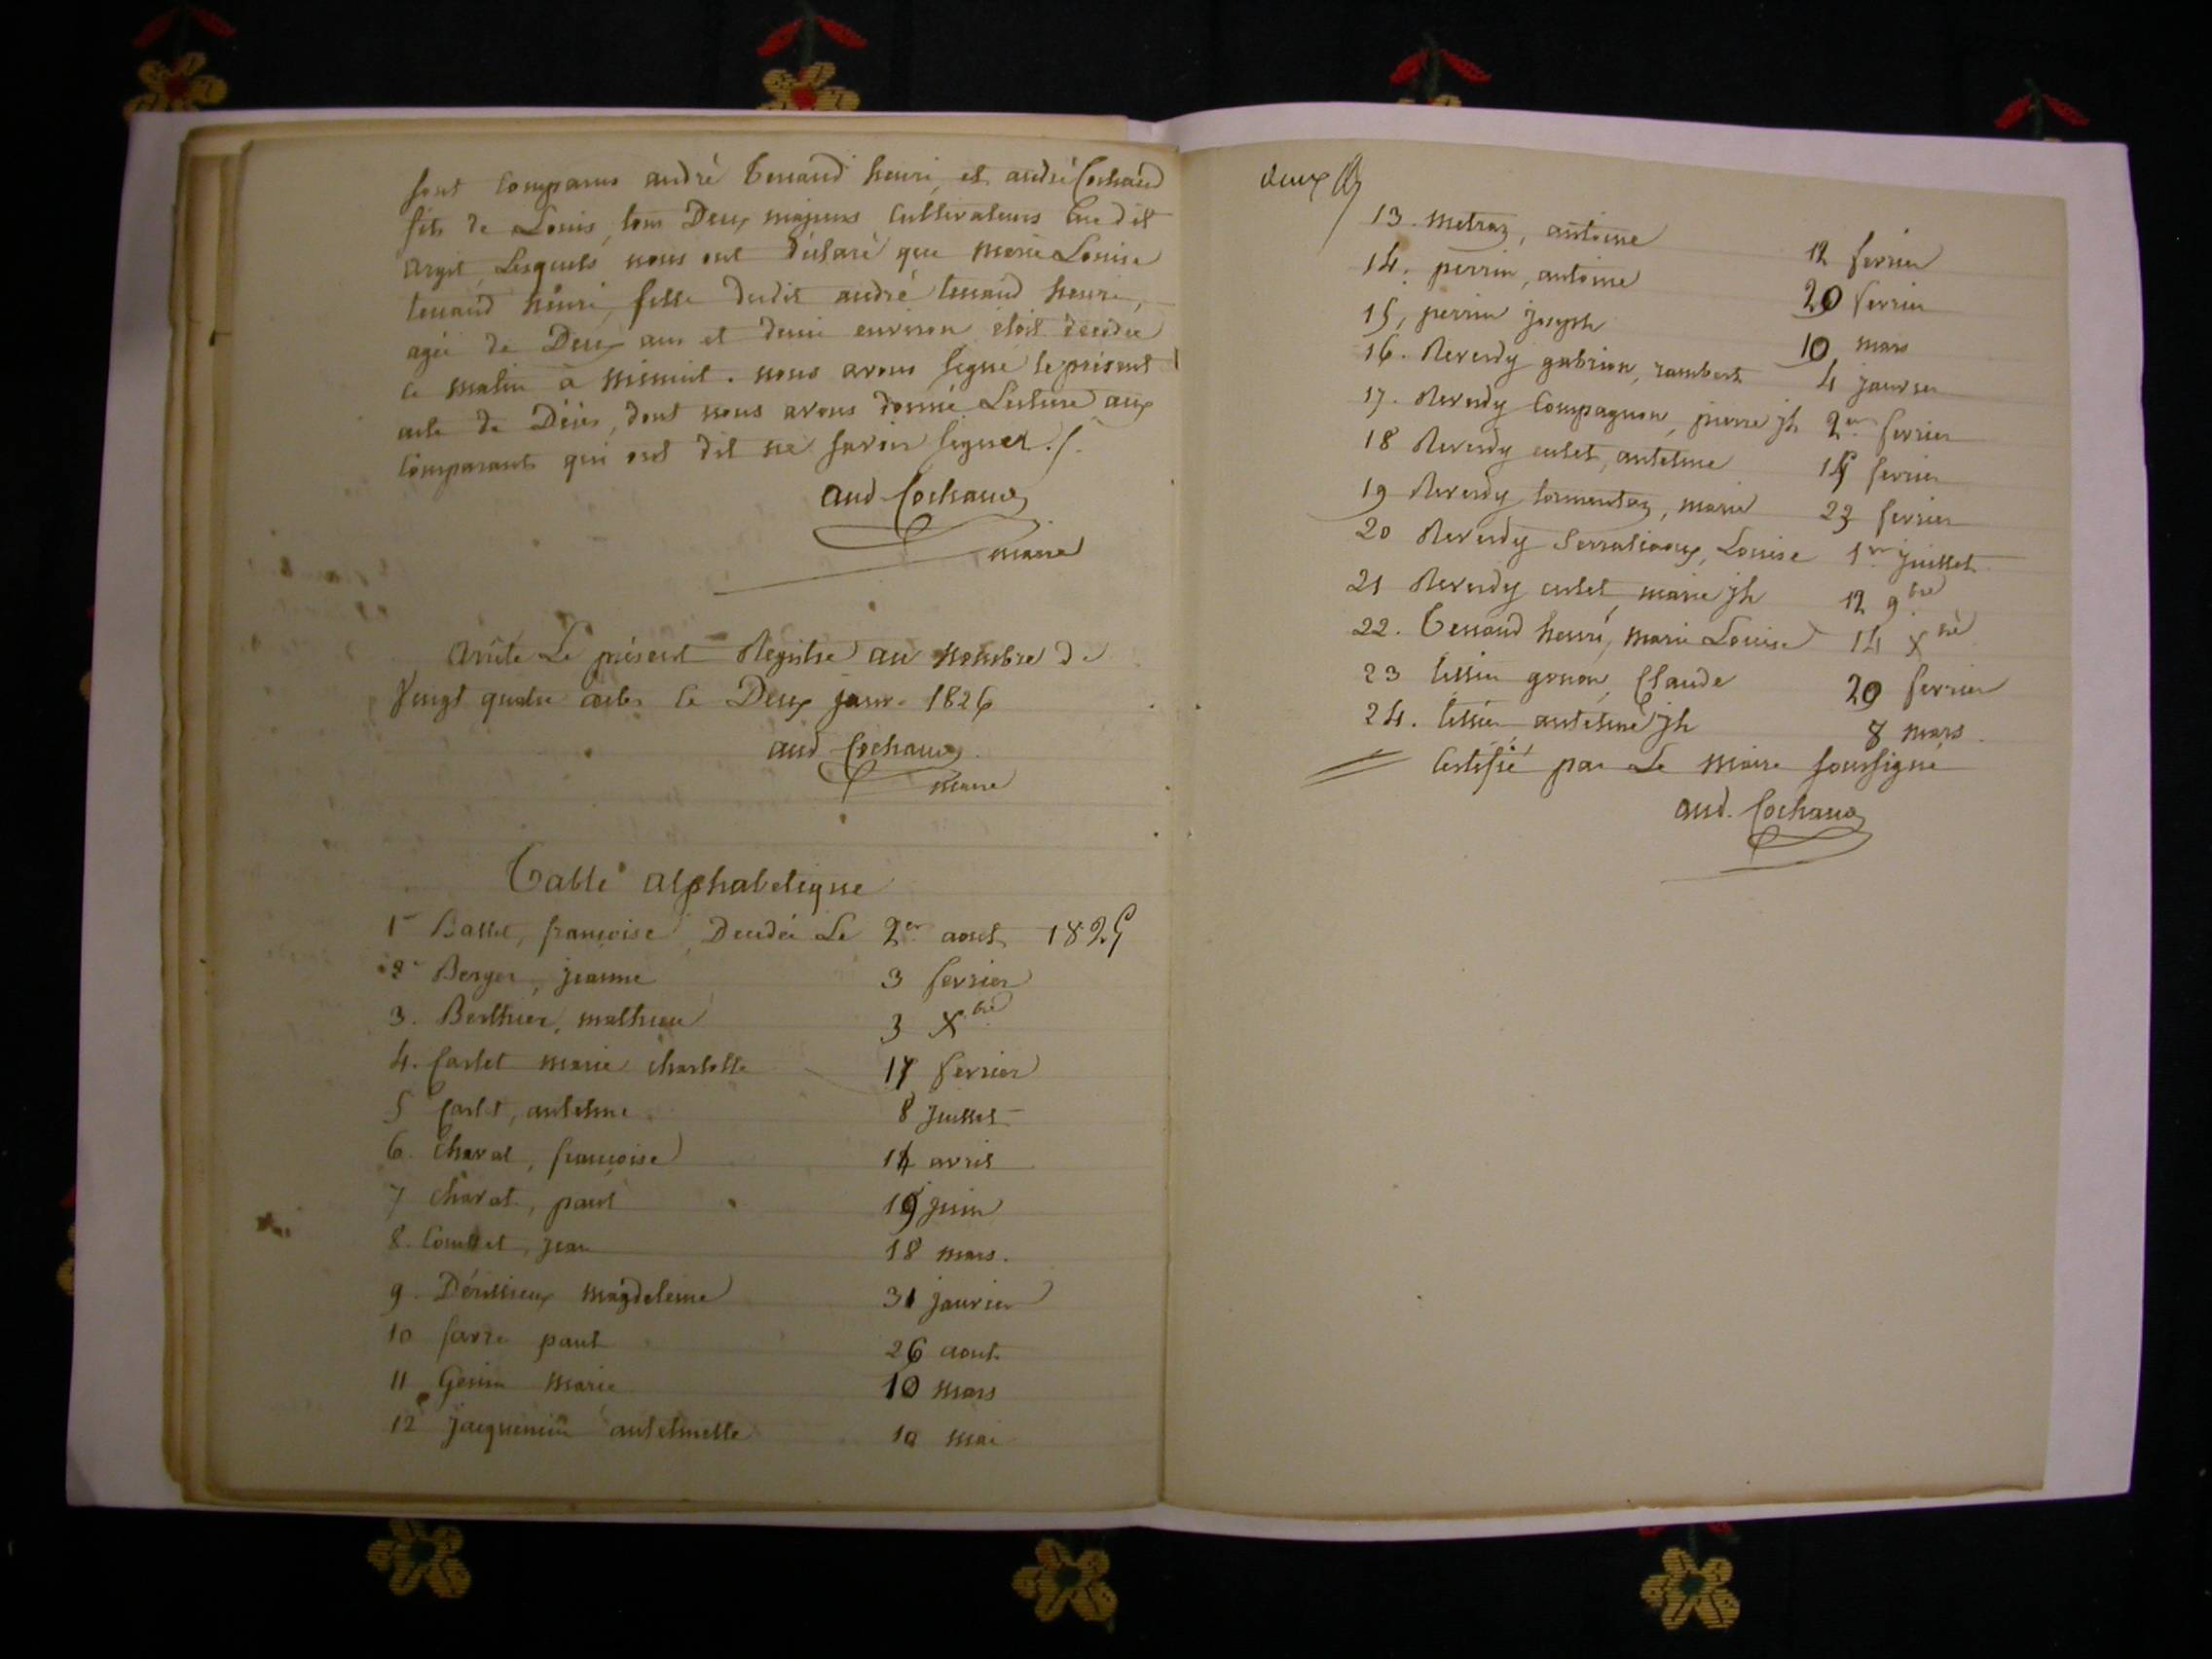 sont comparus andré Tenand henri, et andré Cochaud
fils de Louis, tous Deux majeurs Cultivateurs au dit
argit, Lesquels nous ont déclaré que marie Louise
tenand henri, fille dudit andré tenand henri,
agée de Deux ans et demi environ étoit décédée
ce matin à minuit. nous avons signé le présent
acte de Décès, dont nous avons donné Lecture aux
comparants qui ont dit ne savoir signer ./.
and Cochaud
maire
Arrête Le présent Registre au nombre de
Vingt quatre actes le Deux janv. 1826
and Cochaud
maire
Table alphabetique
1er Ballet, françoise Decedée Le 2er aout 1825
2e Berger, jeanne 3 fevrier
3. Berthier, mathieu 3 Xbre
4. Carlet marie charlotte 17 fevrier
5 Carlet, antelme 8 juillet
6. Charat, françoise 14 avril
7 Charat, paul 19 juin
8. jean 18 mars.
9. Dérissieux magdeleine 31 janvier
10 farre paul 26 aout
11 Genin marie 10 mars
12 jacquemin antelmette 10 mai
deux
13. metraz, antoine 12 fevrier
14. perrin, antoine 20 fevrier
15, perrin joseph 10 mars
16. Reverdy gabrion, rambert 4 janvier
17. Reverdy Compagnon, pierre jh 2er fevrier
18 Reverdy culet, antelme 15 fevrier
19 Reverdy tormentaz, marie 23 fevrier
20 Reverdy Serralioux, Louise 1er juillet
21 Reverdy culet marie jh 12 9bre
22. Tenand henri, marie Louise 14 Xbre
23 tissier gonon, Claude 20 fevrier
24. tissier antelme jh 8 mars.
Certifié par Le maire soussigné
and. Cochaud